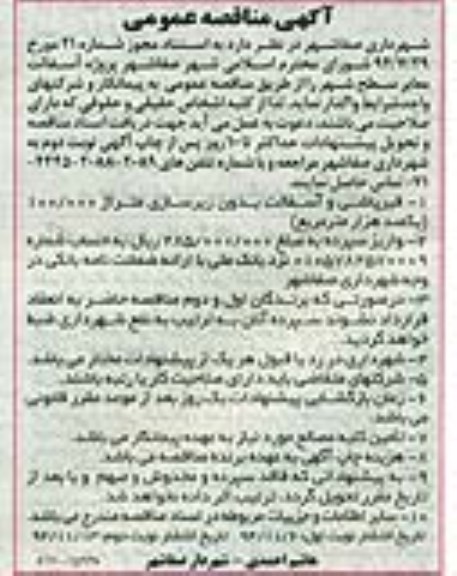 آگهی مناقصه عمومی
شهرداری صفاشهر در نظر دارد به استناد مجوز شماره ۲۱ مورخ
شورای محترم اسلامی شهر صفاشهر پروژه آسفالت
معابر سطح شهر را از طریق مناقصه عمومی به پیمانکار و شرکتهای
واجد شرایط واگذار نماید. لذا از کلیه اشخاص حقیقی و حقوقی که دارای
صلاحیت می باشند، دعوت به عمل می آید جهت دریافت اسناد مناقصه
و تحویل پیشنهادات حداکثر تا ۱۰ روز پس از چاپ آگهی نوبت دوم به
شهرداری صفاشهر مراجعه و با شماره تلفن های
تماس حاصل نمایند.
۱- قیرپاشی و آسفالت بدون زیرسازی متراژ ۱۰۰/۰۰۰
(یکصد هزار مترمربع)
۲- واریز سپرده به مبلغ ریال به حساب شماره
نزد بانک ملی یا ارائه ضمانت نامه بانکی در
وجه شهرداری صفاشهر
۳- در صورتی که برندگان اول و دوم مناقصه حاضر به انعقاد
قرارداد نشوند سپرده آنان به ترتیب به نفع شهرداری ضبط
خواهد گردید.
۴- شهرداری در رد یا قبول هر یک از پیشنهادات مختار می باشد.
۵- شرکتهای متقاضی باید دارای صلاحیت کار یا رتبه باشند.
۶- زمان بازگشایی پیشنهادات یک روز بعد از موعد مقرر قانونی
می باشد.
۷- تامین کلیه مصالح مورد نیاز به عهده پیمانکار می باشد.
۸- هزینه چاپ آگهی به عهده برنده مناقصه می باشد.
۹- به پیشنهاداتی که فاقد سپرده و مخدوش و مبهم و یا بعد از
تاریخ مقرر تحویل گردد، ترتیب اثر داده نخواهد شد.
۱۰- سایر اطلاعات و جزییات مربوطه در اسناد مناقصه مندرج می باشد.
تاریخ انتشار نوبت اول: ۹۲/۱۱/۶ تاریخ انتشار نوبت دوم: ۹۲/۱۱/۱۳
شهردار صفاشهر